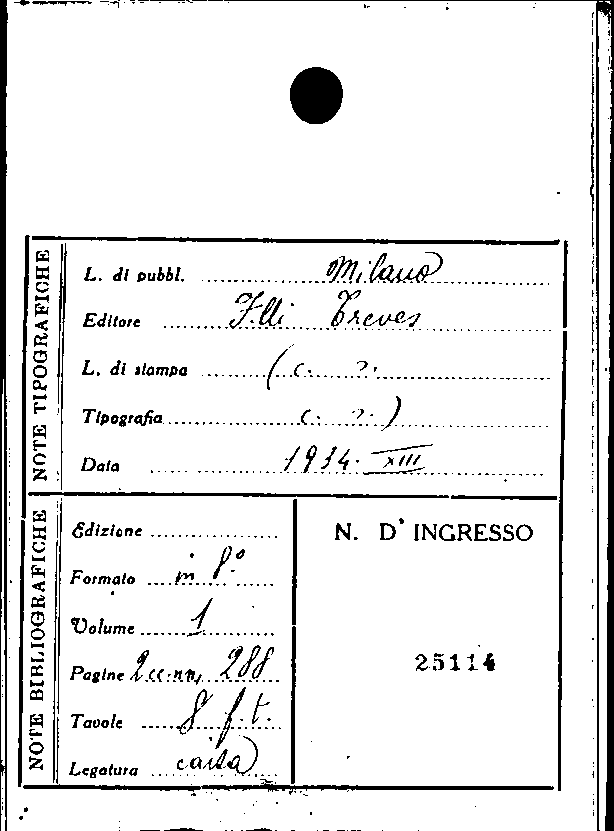 NOTE TIPOGRAFICHE
L. di pubbl. Milano
Editore F.lli Treves
L. di stampa (c. s.
Tipografia c. s.)
Data 1934. XIII
NOTE BIBLIOGRAFICHE
Edizione
Formato in 8°
Volume 1
Pagine 2 cc. nn, 288
Tavole 8 f. t.
Legatura carta
N. D' INGRESSO
25114